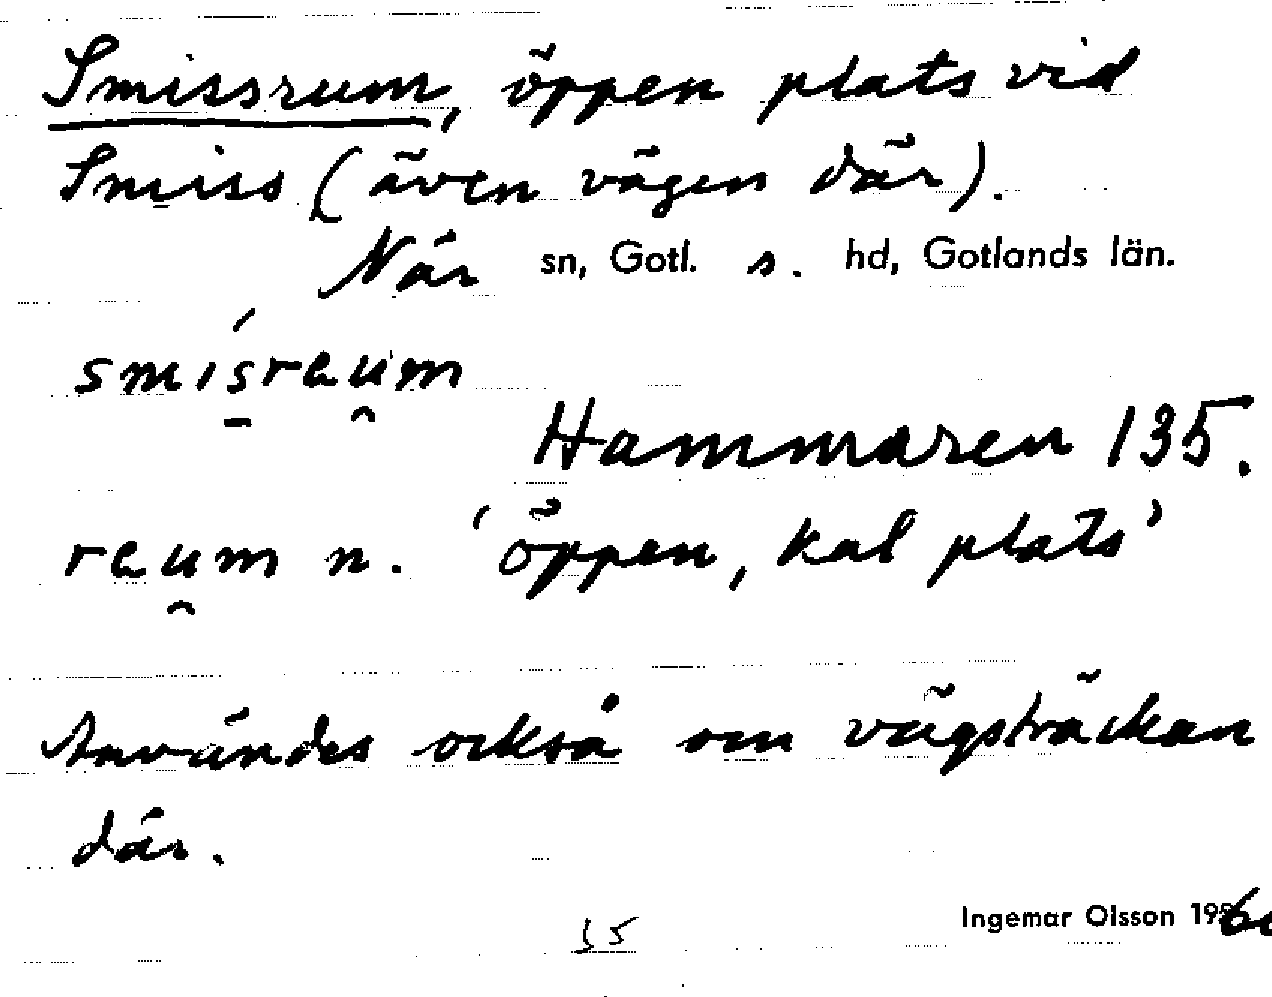 Smissrum, öppen plats vid
Smiss (även vägen där).
När sn, Gotl. s. hd, Gotlands län.
smi̍s̱rau̯m
Hammaren 135.
rau̯m n. 'öppen, kal plats'
Användes också om vägsträckan
där.
Ingemar Olsson 196
35